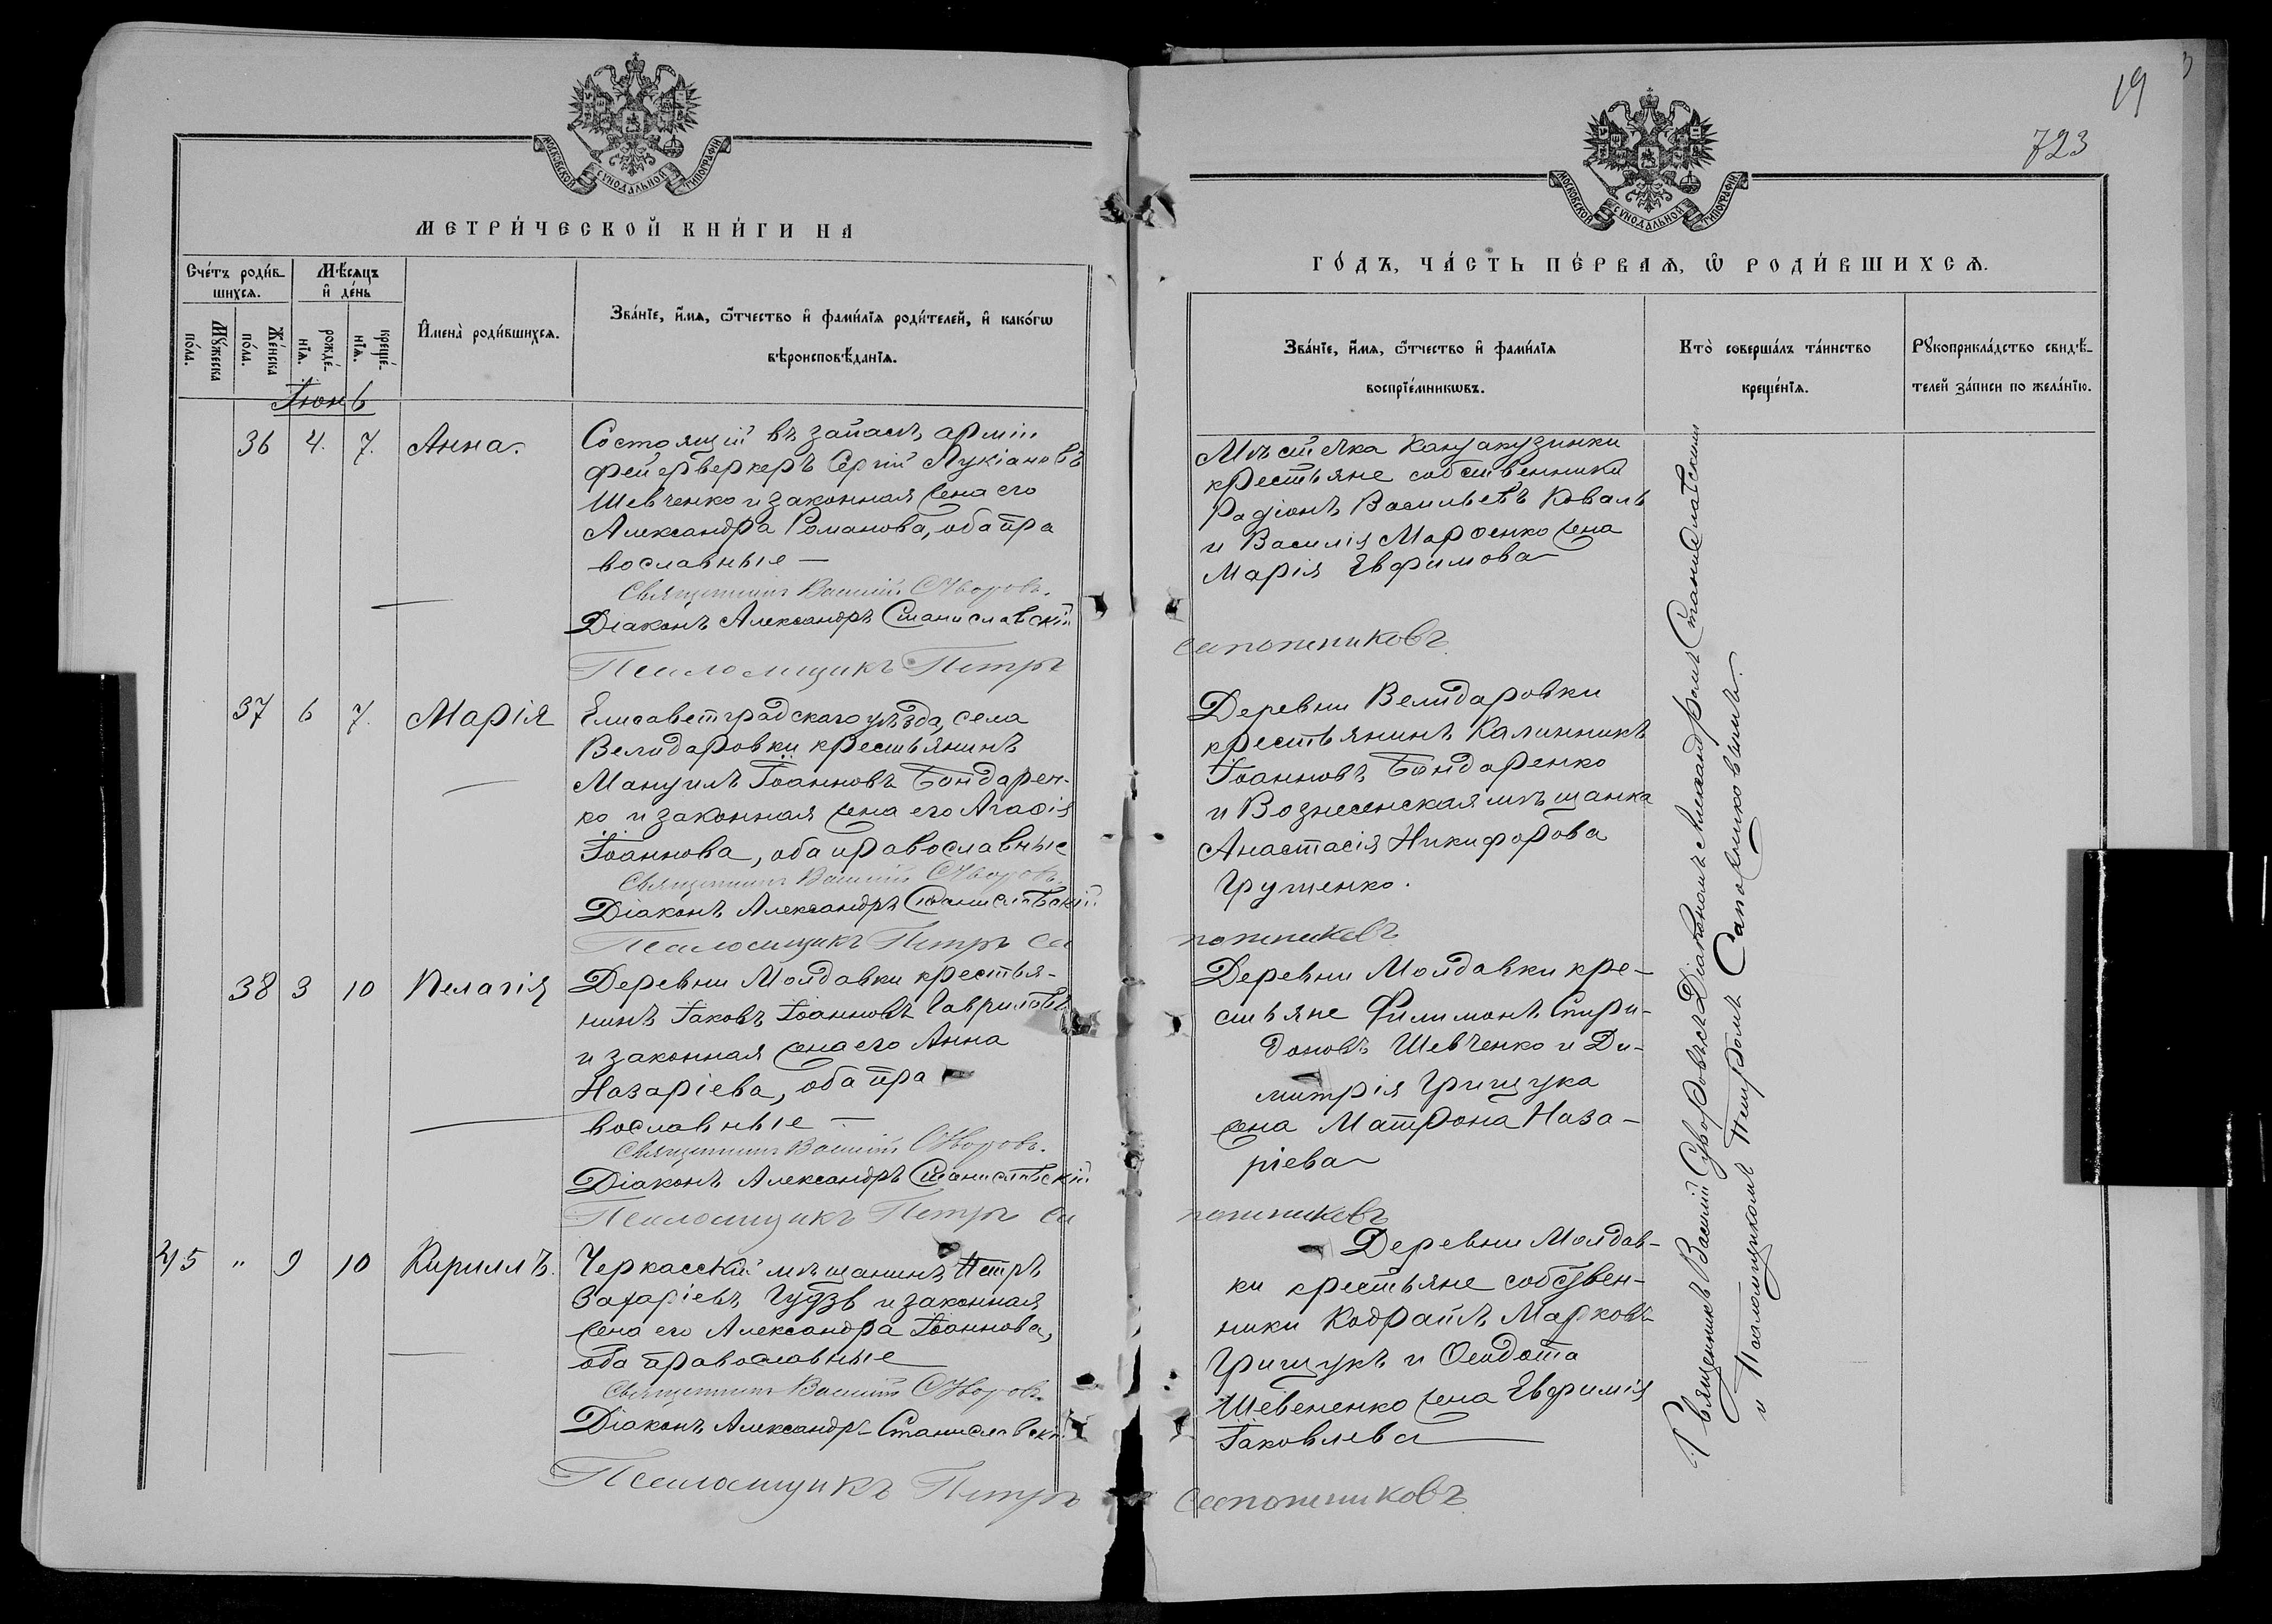 МОСКОВСКОЙ СѴНОДАЛЬНОЙ ТИПОГРАФІИ
МЕТРИ́ЧЕСКОЙ КНИ́ГИ НА
Сче́тъ роди́в-
шихсѧ.
Мѣ́сѧцъ
и҆ де́нь
Мꙋ́жеска
по́ла.
Же́нска
по́ла.
рожде́-
нїѧ.
креще́-
нїѧ.
И҆мена̀ роди́вшихсѧ.
Зва́нїе, и҆́мѧ, ѻ҆́тчество и҆ фами́лїѧ роди́телей, и҆ како́гѡ
вѣроисповѣ́данїѧ.
Іюнь
36 4. 7. Анна.
Состоящій въ запасѣ арміи
фейерверкеръ Сергій Лукіановъ
Шевченко и законная жена его
Александра Романова, оба пра
вославные —
Священникъ Василій Суворовъ.
Діаконъ Александръ Станиславскій
Псаломщикъ Петръ
37 6 7. Марія
Елисаветградскаго уѣзда, села
Велидаровки крестьянинъ
Мануилъ Іоанновъ Бондарен-
ко и законная жена его Агафія
Іоаннова, оба православные
Священникъ Василій Суворовъ.
Діаконъ Александръ Станиславскій
Псаломщикъ Петръ Са
38 3 10 Пелагія
Деревни Молдавки крестья-
нинъ Іаковъ Іоанновъ Гавриловъ
и законная жена его Анна
Назаріева, оба пра
вославные —
Священникъ Василій Суворовъ.
Діаконъ Александръ Станиславскій
Псаломщикъ Петръ Са
45 " 9 10 Кириллъ.
Черкасскій мѣщанинъ Петръ
Захаріевъ Гудзь и законная
жена его Александра Іоаннова,
оба православные
Священникъ Василій Суворовъ.
Діаконъ Александръ Станиславскій
Псаломщикъ Петръ
19
723
МОСКОВСКОЙ СѴНОДАЛЬНОЙ ТИПОГРАФІИ
ГО́ДЪ, ЧА́СТЬ ПЕ́РВАѦ, Ѡ҆ РОДИ́ВШИХСѦ.
Зва́нїе, и҆́мѧ, ѻ҆́тчество и҆ фами́лїѧ
воспрїе́мникѡвъ.
Кто̀ соверша́лъ та́инство
креще́нїѧ.
Рꙋкоприкла́дство свидѣ́-
телей за́писи по жела́нїю.
Мѣстечка Кантакузинки
крестьяне собственники
Радіонъ Васильевъ Коваль
и Василія Марченко жена
Марія Евфимова
Сапожниковъ
Деревни Велидаровки
крестьянинъ Калинникъ
Іоанновъ Бондаренко
и Вознесенская мѣщанка
Анастасія Никифорова
Грушенко.
пожниковъ
Деревни Молдавки кре-
стьяне Филимонъ Спири-
доновъ Шевченко и Ди-
митрія Грищука
жена Матрона Наза-
ріева
пожниковъ
Деревни Молдав-
ки крестьяне собствен-
ники Кодратъ Марковъ
Грищукъ и Феодота
жена Евфимія
Іаковлева
Сапожниковъ
Священникъ Василій Суворовъ съ Діакономъ Александромъ Станиславскимъ
и Псаломщикомъ Петромъ Сапожниковымъ.